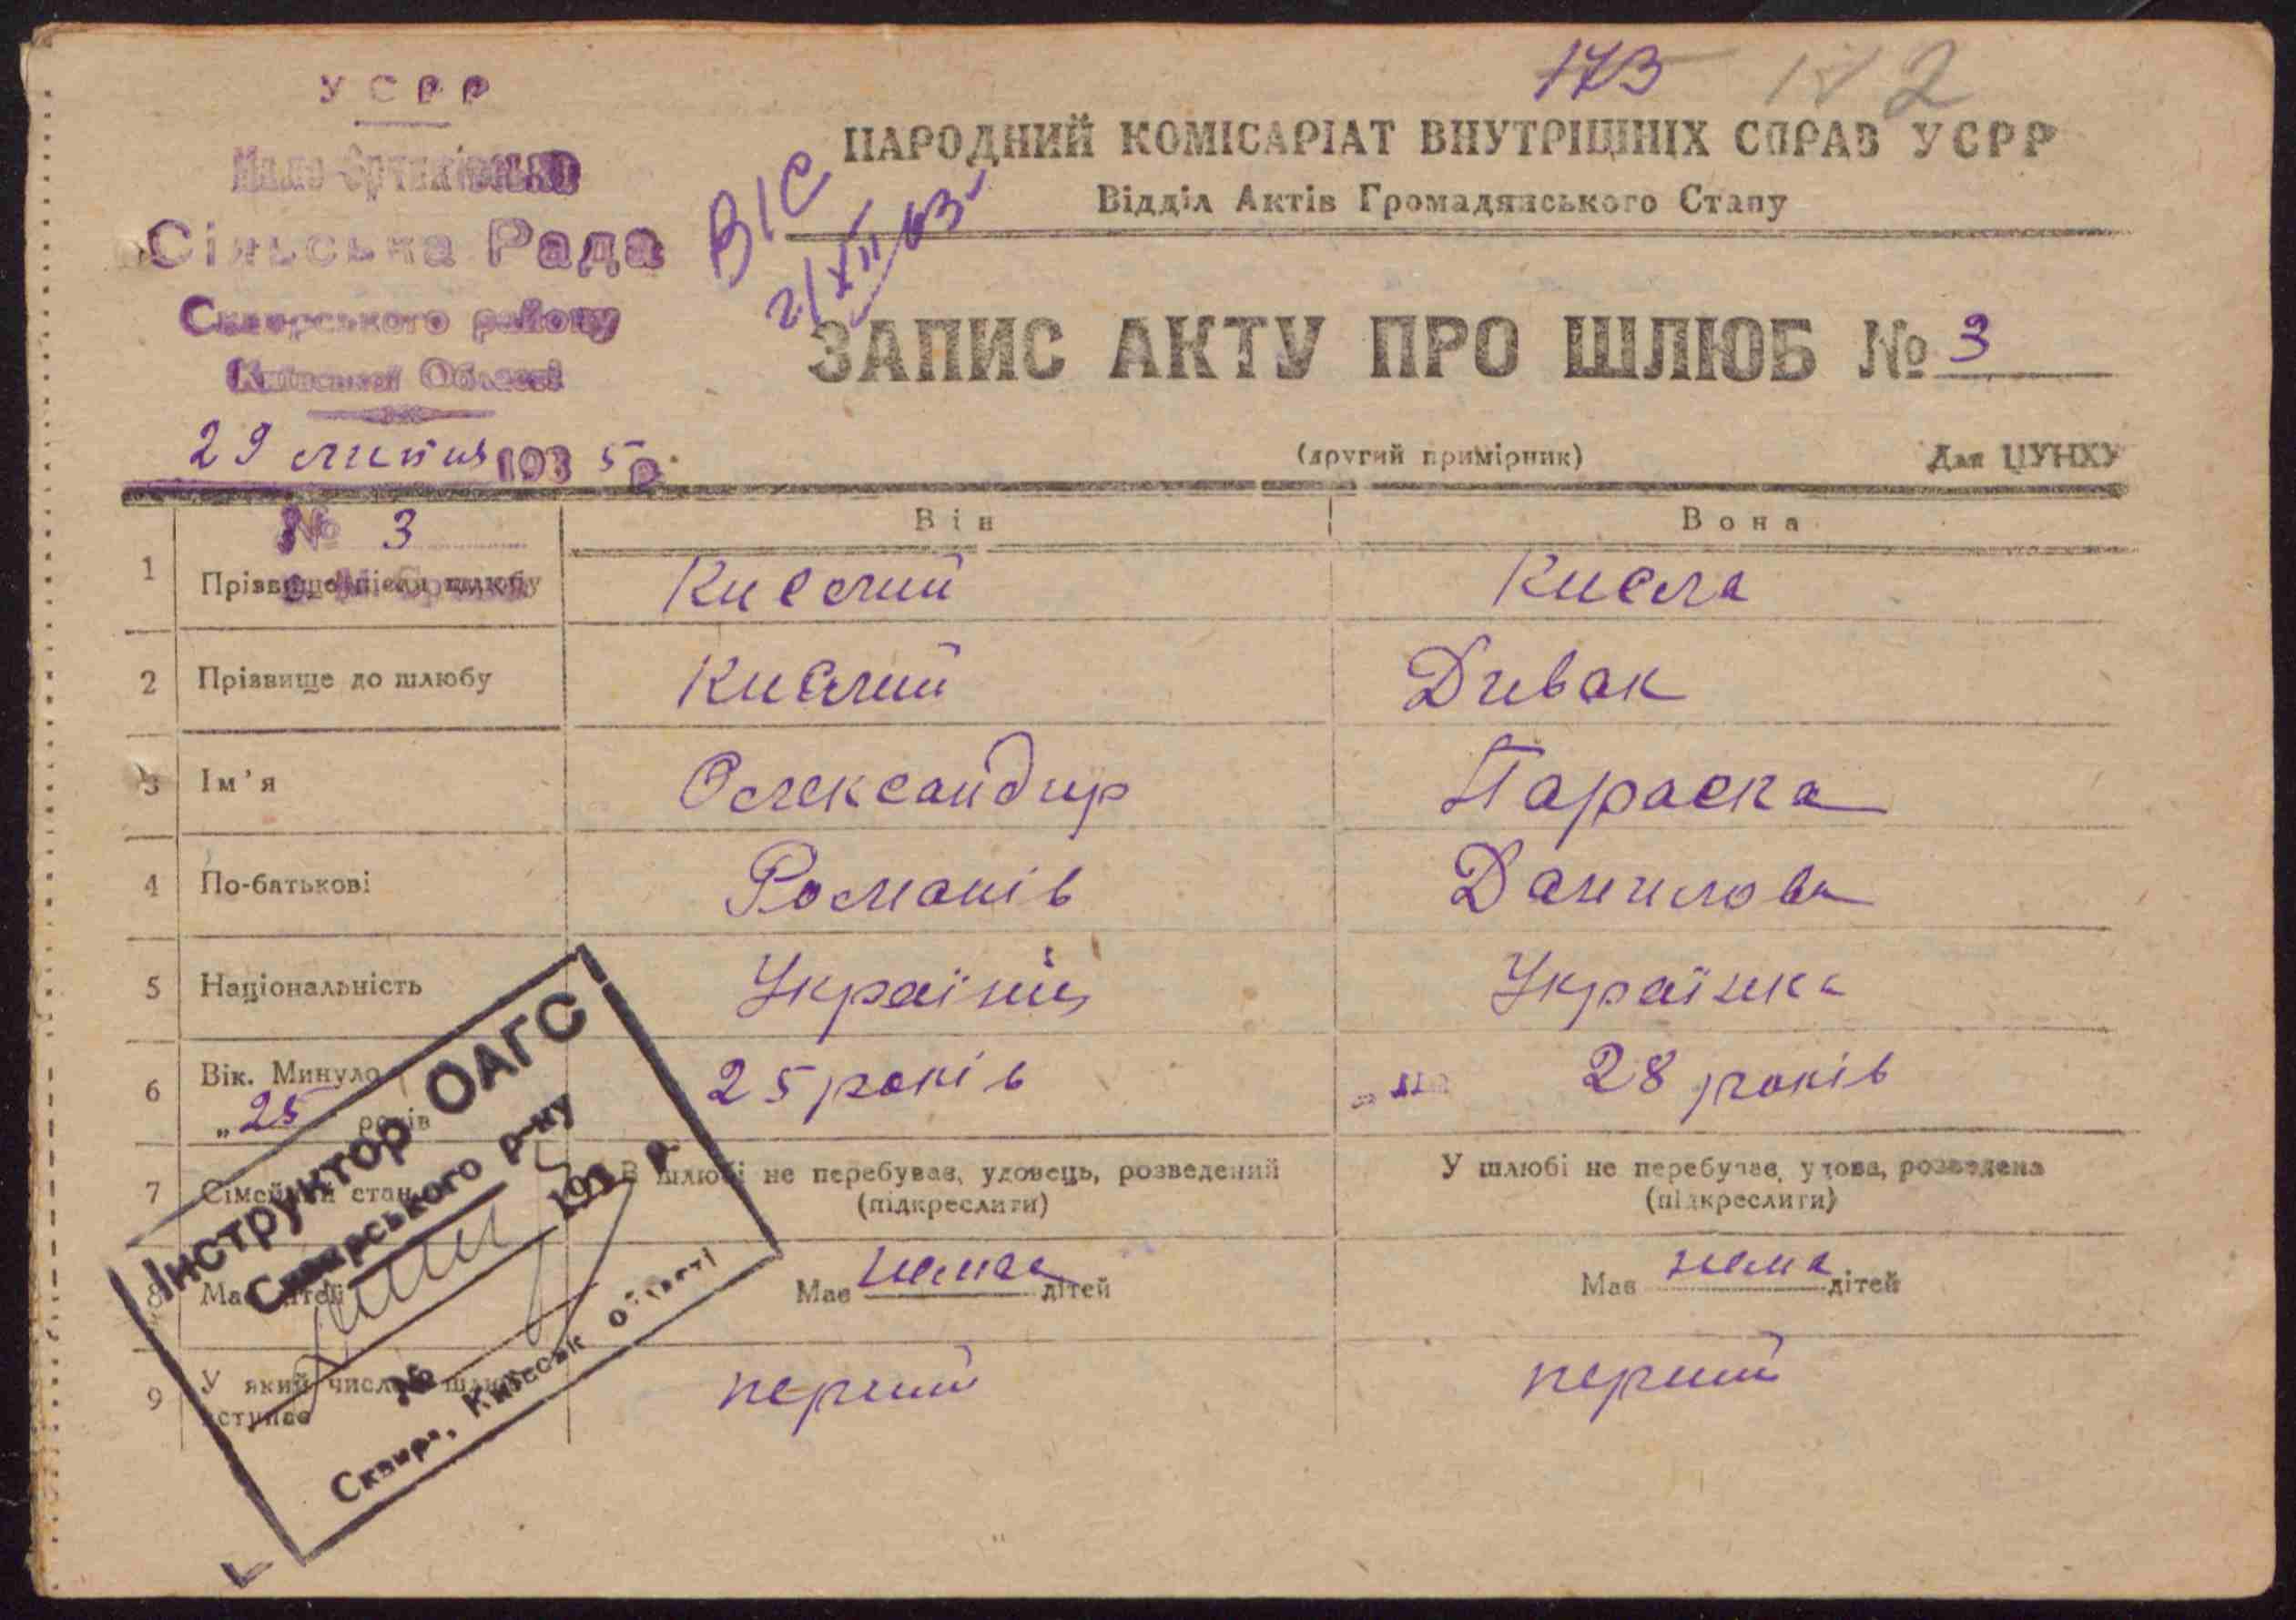 173 182
УСРР
Сільська Рада
Сквирського району
Київської Області
29 липня 1935 р.
№ 3
НАРОДНИЙ КОМІСАРІАТ ВНУТРІШНІХ СПРАВ УСРР
Відділ Актів Громадянського Стану
ВІС
2/XII 63
ЗАПИС АКТУ ПРО ШЛЮБ № 3
(другий примірник) Для ЦУНХУ
Він Вона
1 Прізвище після шлюбу Кислий Кисла
2 Прізвище до шлюбу Кислий Дивак
3 Ім'я Олександир Параска
4 По-батькові Романів Данилова
5 Національність Українц Українка
6 Вік. Минуло „25 років 25 років 28 років
7 Сімейний стан В шлюбі не перебував, удовець, розведений У шлюбі не перебуває, удова, розведена
(підкреслити) (підкреслити)
8 Має дітей Має немає дітей Має нема дітей
9 У який числом шлюб вступає перший перший
Інструктор ОАГС
Сквирського р-ну
193 р.
№
Сквира, Київськ області